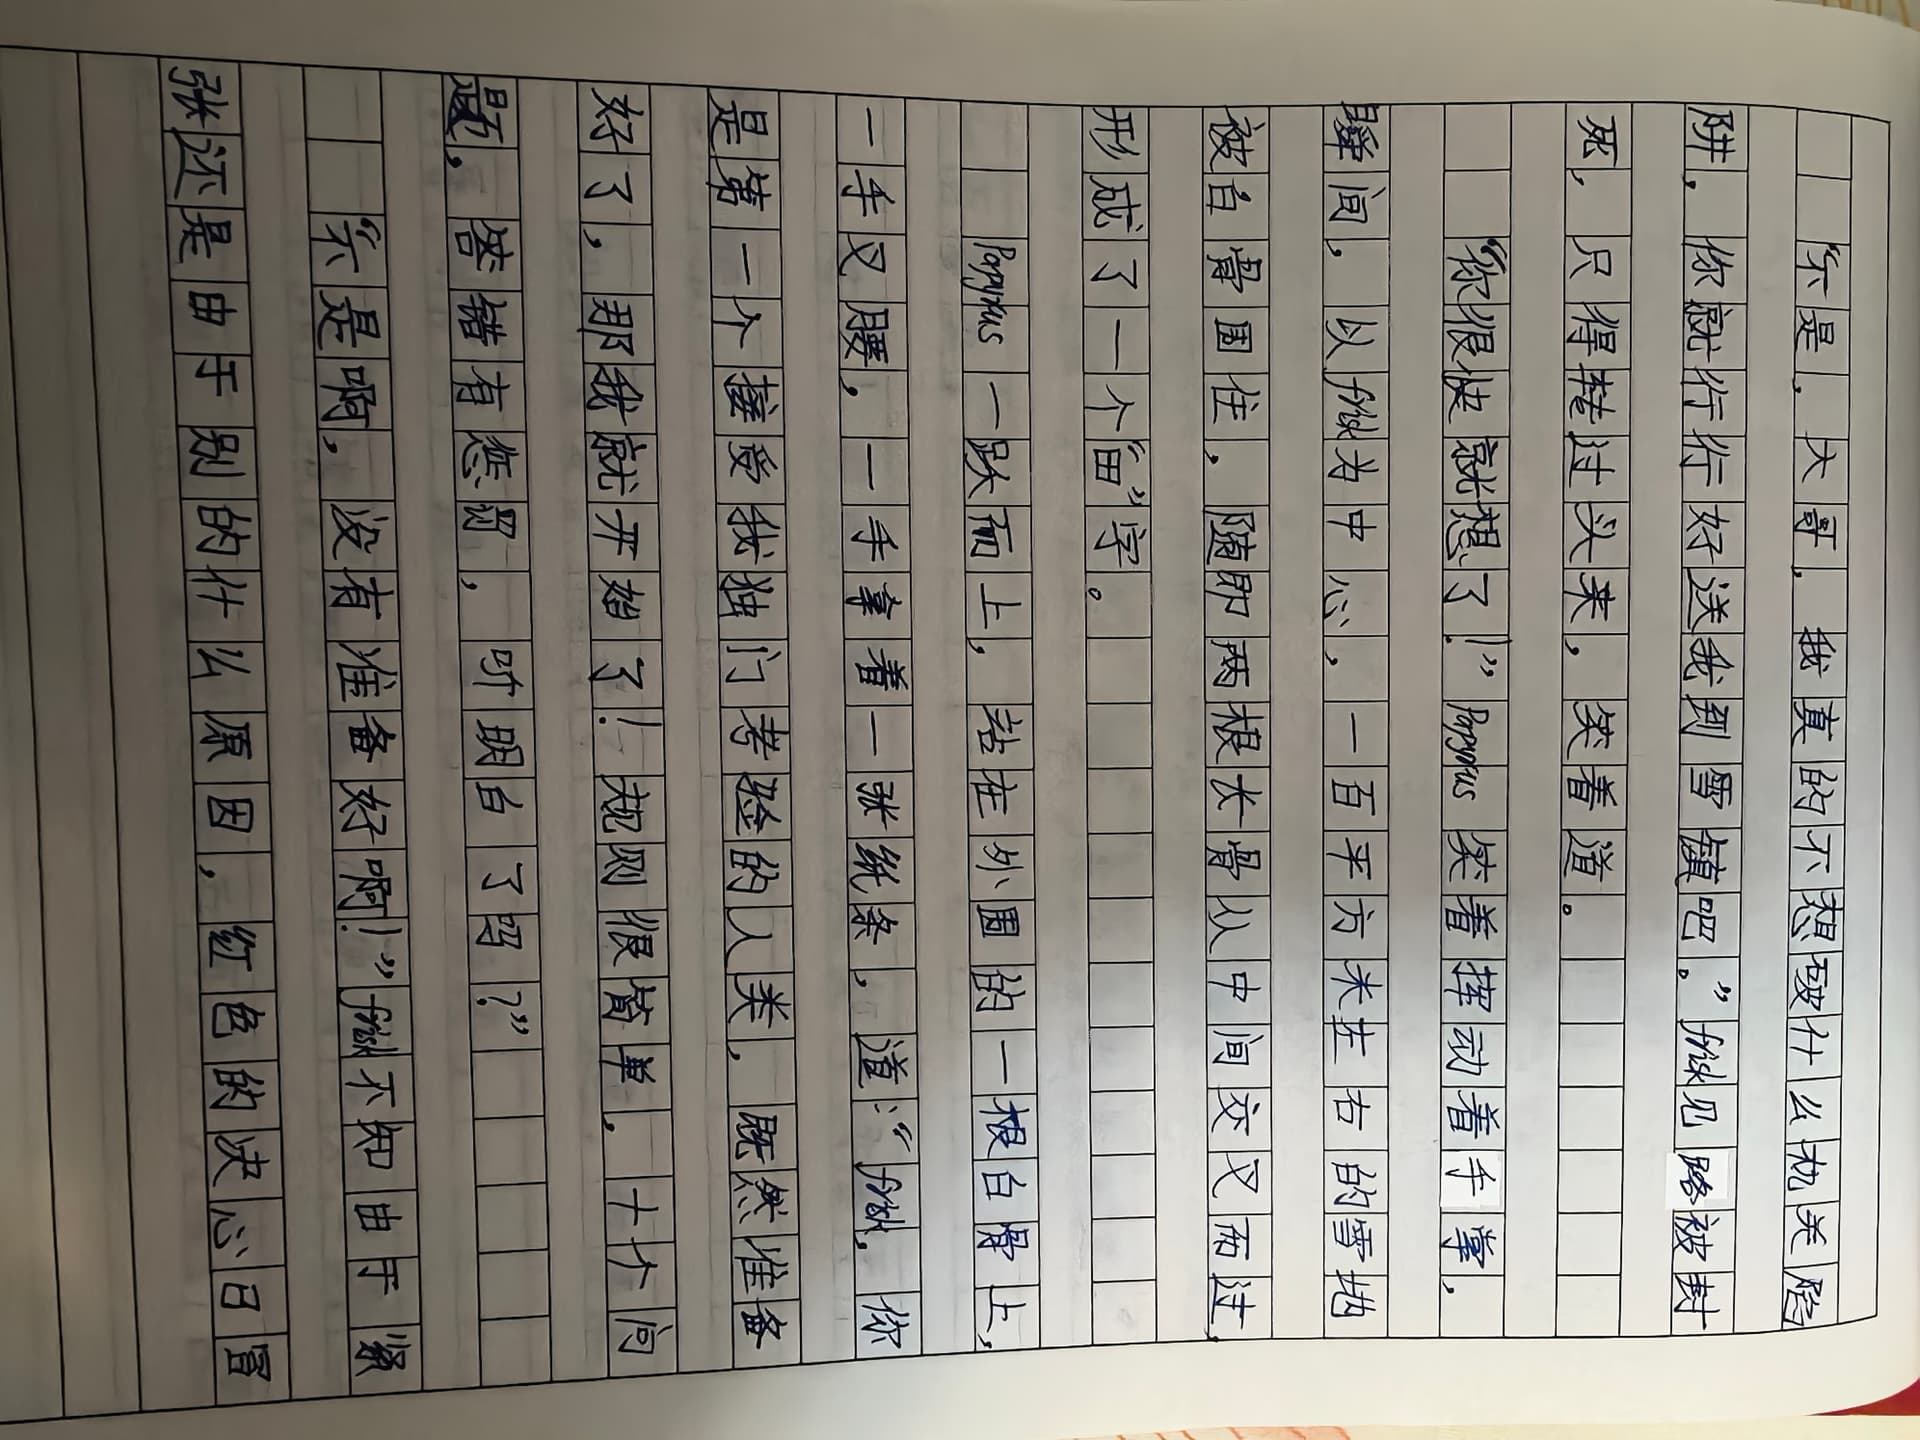 “不是，大哥，我真的不想破什么机关陷
阱，你就行行好送我到雪镇吧。”frisk见路被封
死，只得转过头来，笑着道。
“你很快就想了！”Papyrus笑着挥动着手掌，
瞬间，以frisk为中心，一百平方米左右的雪地
被白骨围住，随即两根长骨从中间交叉而过，
形成了一个“田”字。
Papyrus一跃而上，站在外围的一根白骨上，
一手叉腰，一手拿着一张纸条，道：“frisk，你
是第一个接受我独门考验的人类，既然准备
好了，那我就开始了！规则很简单，十个问
题，答错有惩罚，听明白了吗？”
“不是啊，没有准备好啊！”frisk不知由于紧
张还是由于别的什么原因，红色的决心日冒